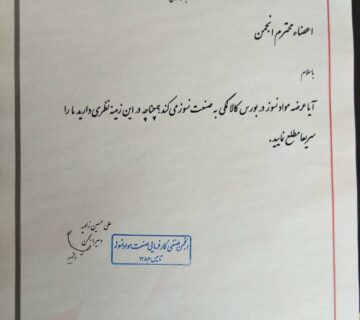 اعضاء محترم انجمن
باسلام
آیا عرضه مواد نسوز در بورس کالا کمکی به صنعت نسوز می کند؟ چنانچه در این زمینه نظری دارید ما را
سریعا مطلع نمایید.
علی حسین زاویه
دبیر انجمن
انجمن صنفی کارفرمایی صنعت مواد نسوز
تاسیس ۱۳۸۶